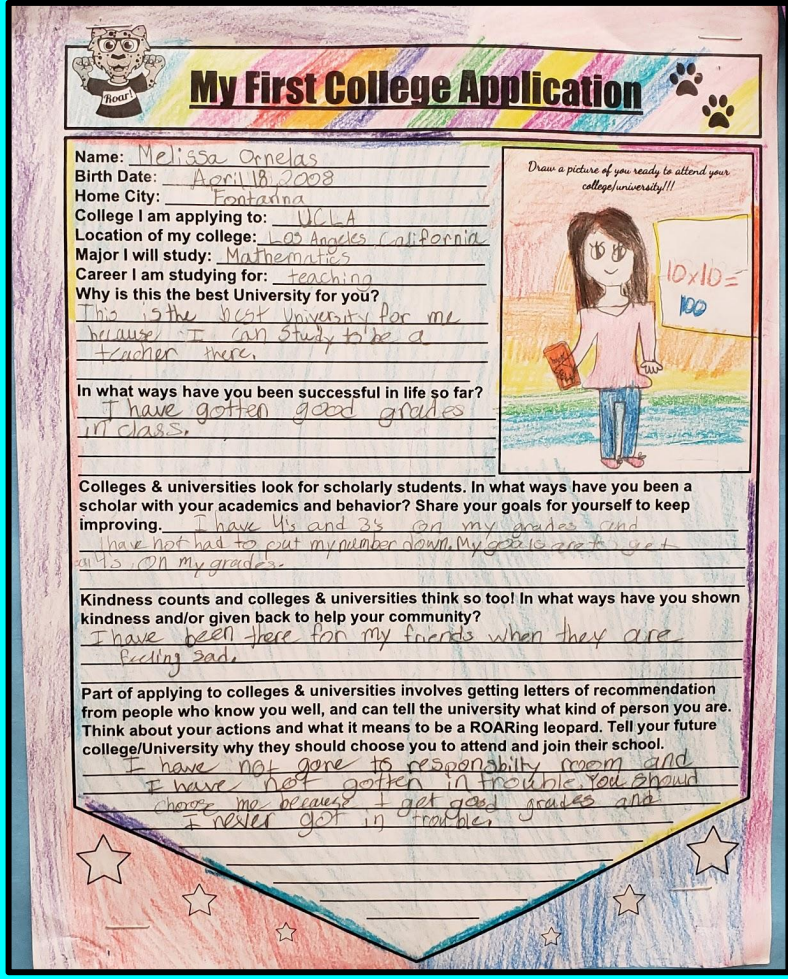 Roar!
My First College Application
Name: Melissa Ornelas
Birth Date: April 18, 2008
Home City: Fontanna
College I am applying to: UCLA
Location of my college: Los Angeles, California
Major I will study: Mathematics
Career I am studying for: teaching
Why is this the best University for you?
This is the best University for me
because I can study to be a
teacher there.
In what ways have you been successful in life so far?
I have gotten good grades
in class.
Draw a picture of you ready to attend your
college/university!!!
10x10=
100
Colleges & universities look for scholarly students. In what ways have you been a
scholar with your academics and behavior? Share your goals for yourself to keep
improving. I have 4's and 3's on my grades and
I have not had to put my number down. My goals are to get
all 4's on my grades.
Kindness counts and colleges & universities think so too! In what ways have you shown
kindness and/or given back to help your community?
I have been there for my friends when they are
feeling sad.
Part of applying to colleges & universities involves getting letters of recommendation
from people who know you well, and can tell the university what kind of person you are.
Think about your actions and what it means to be a ROARing leopard. Tell your future
college/University why they should choose you to attend and join their school.
I have not gone to responsibilty room and
I have not gotten in trouble. You should
choose me because I get good grades and
I never got in trouble.